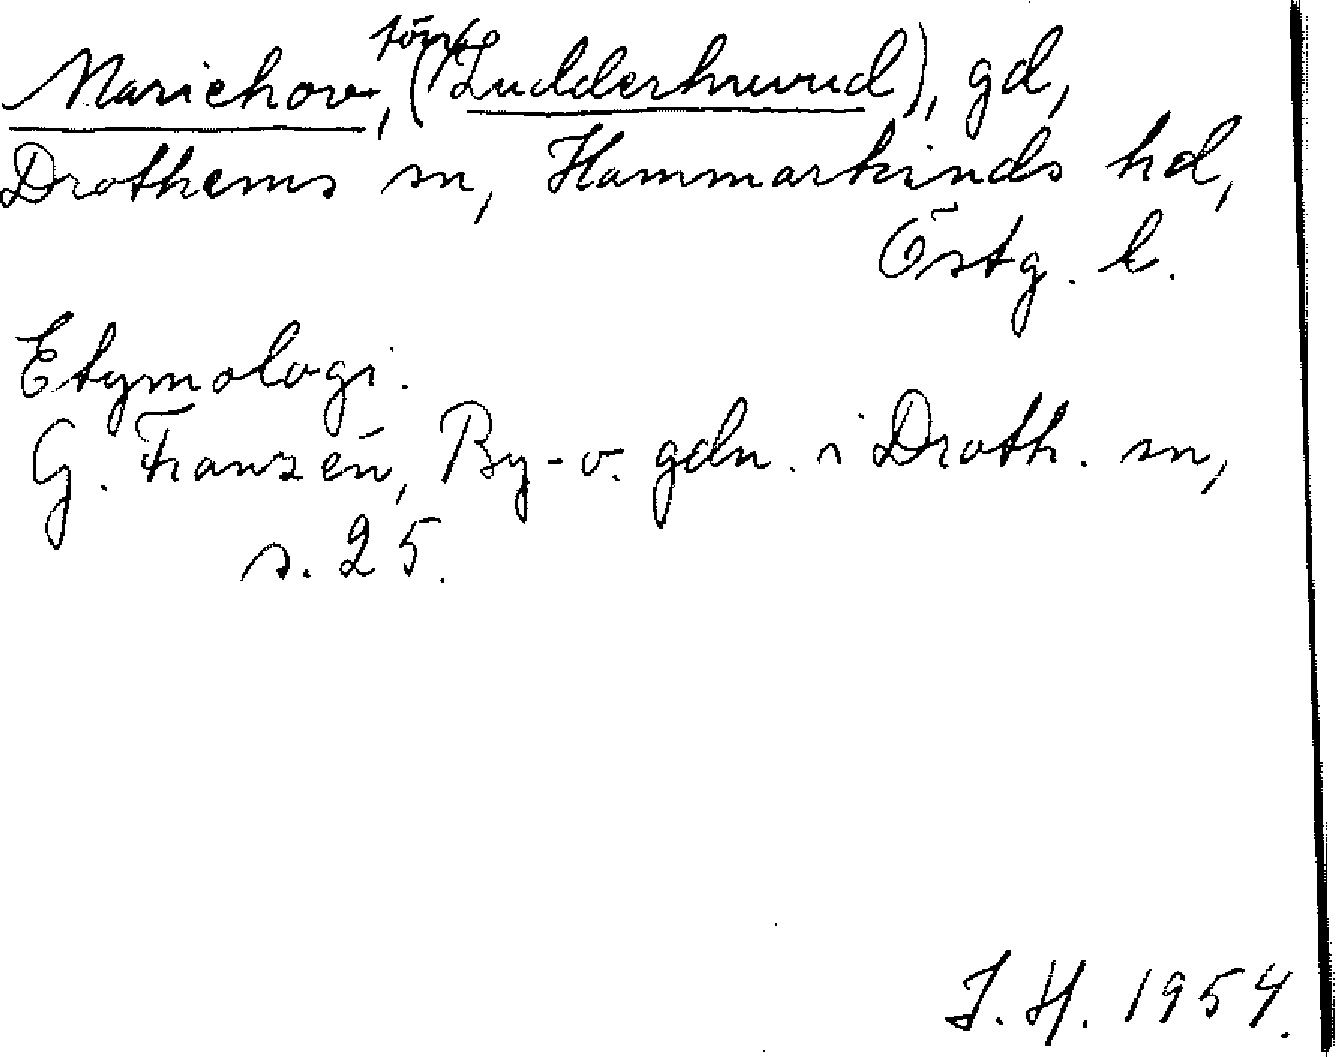 Mariehov, (förr Ludderhuvud), gd,
Drothems sn, Hammarkinds hd,
Östg. l.
Etymologi.
G. Franzén, By- o. gdn. i Droth. sn,
s. 25.
J. H. 1954.